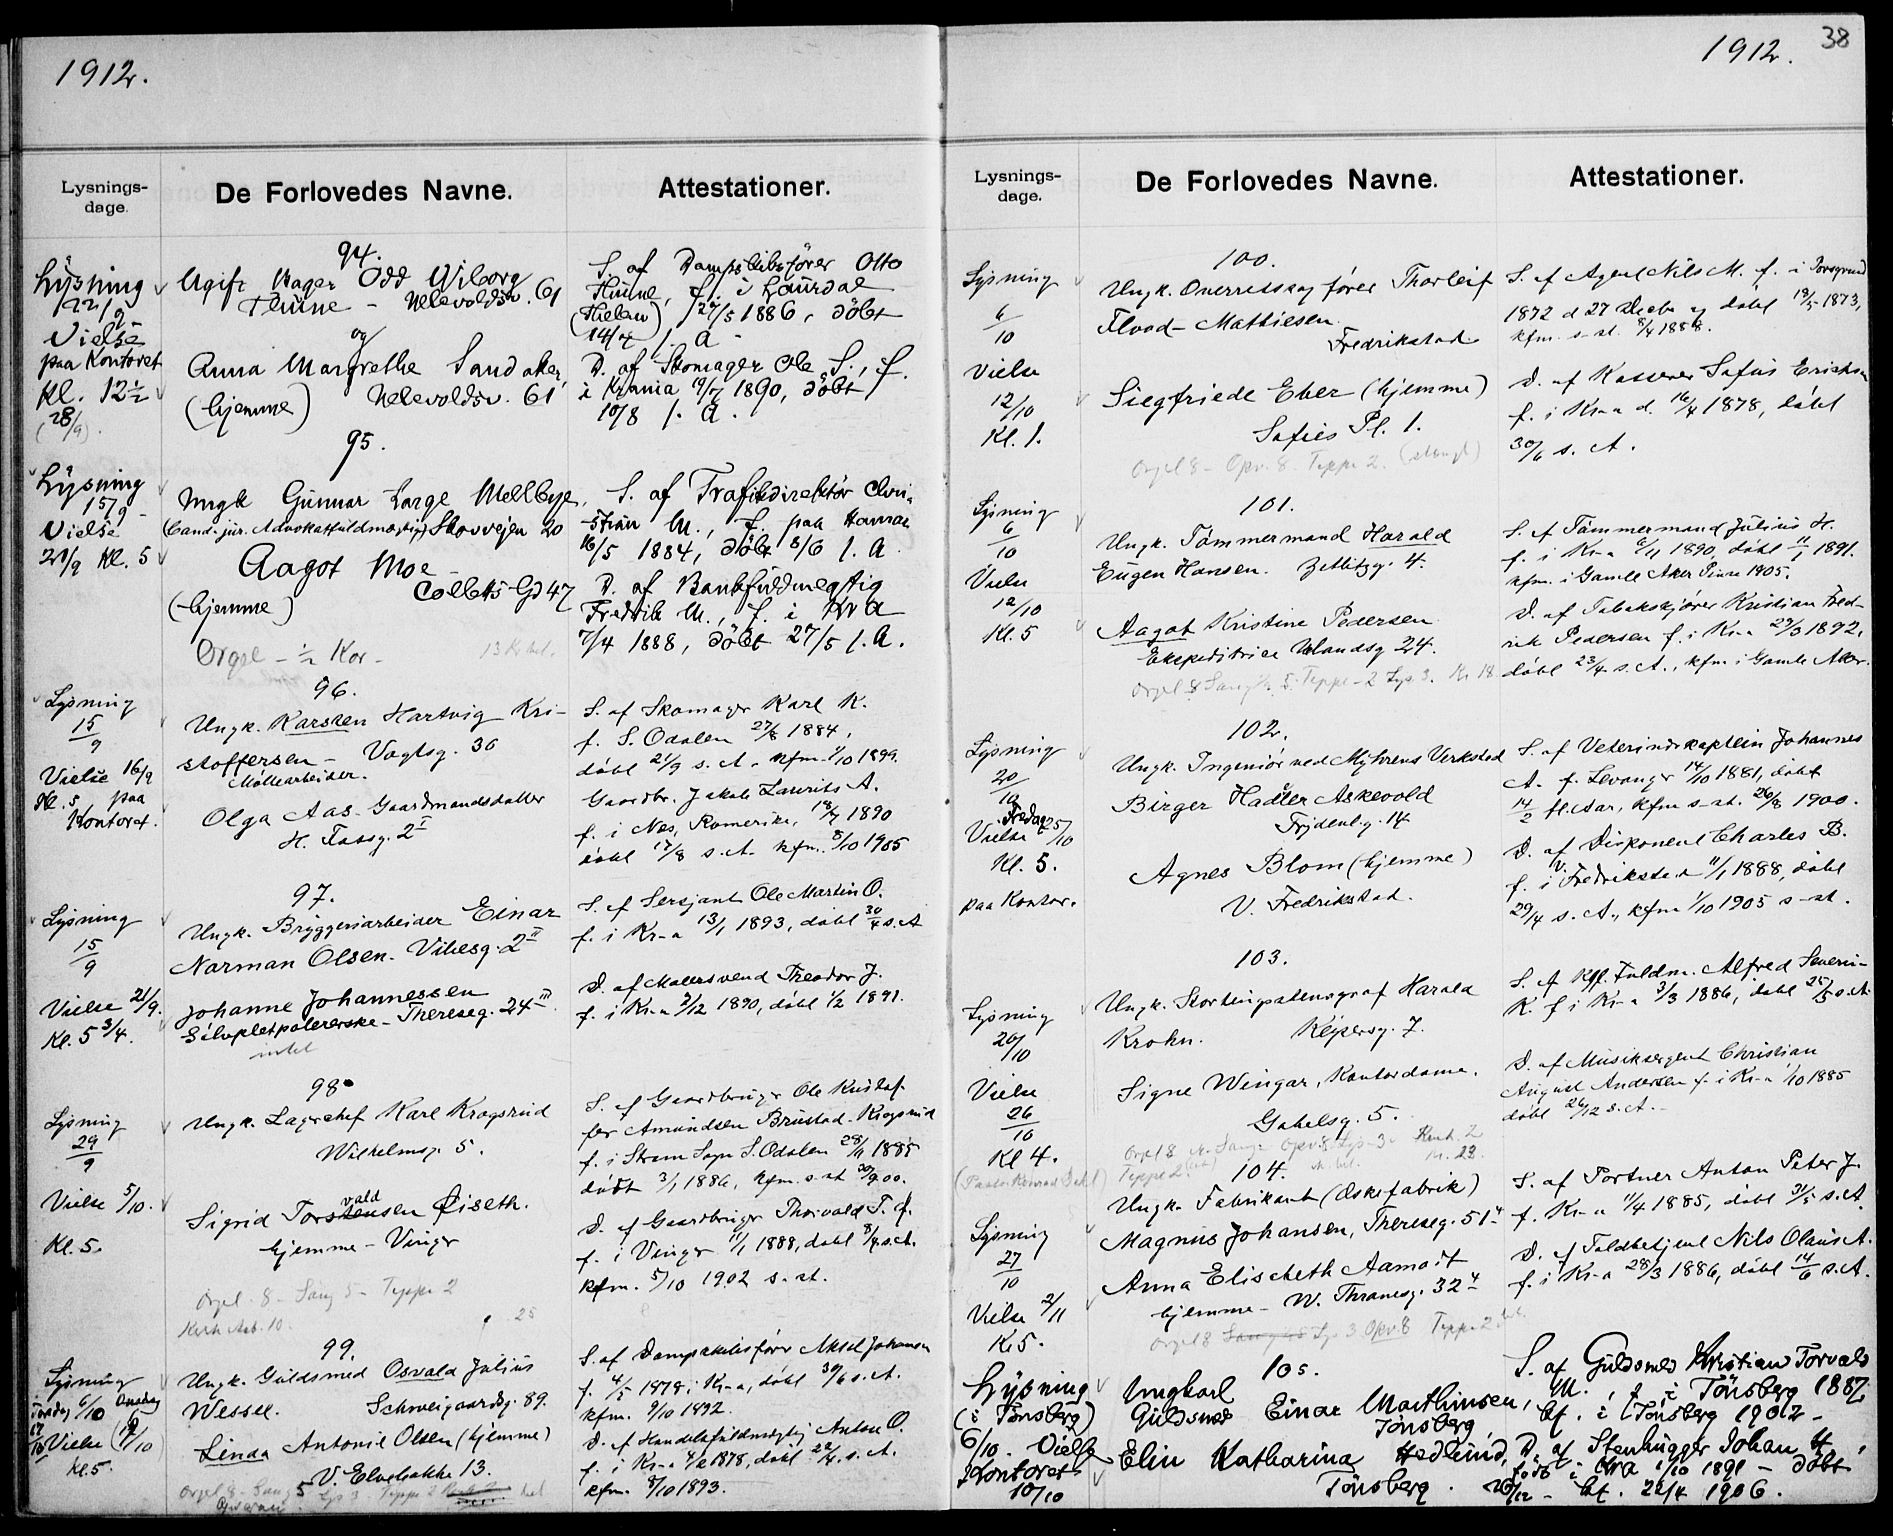 1912.
Lysnings-
dage.
De Forlovedes Navne.
Attestationer.
94.
Lysning
22/9
Vielse
paa Kontoret
Kl. 12½
(28/9).
Ugift Odd Wiborg
Thune – Ullevoldsv. 61
og
Anna Margrethe Sandaker
(hjemme) Ullevoldsv. 61
S. af Dampskibsfører Otto
Thune, f. i Laurdal
27/5 1886, døbt
14/7 s. A
D. af Skomager Ole S., f.
i Krania 19/7 1890, døbt
10/8 s. A.
95.
Lysning
15/9 –
Vielse
21/9 Kl. 5
Ungk Gunnar Lange Mellbye,
Cand. jur. Advokatfuldmægtig Skovvejen 20
Aagot Moe
Colletts Gd 47
(hjemme)
Orgel – ½ Kor –
S. af Trafikdirektør Chri-
stian M., f. paa Hamar
16/5 1884, døbt 8/6 s. A.
D. af Bankfuldmegtig
Fredrik M., f. i Kra
7/4 1888, døbt 27/5 s. A.
96.
Lysning
15/9
Vielse 16/9
Kl. 5 paa
Kontoret.
Ungk. Karsten Hartvig Kri-
stoffersen – Vogtsg. 36
Møllearbeider.
Olga Aas – Gaardmandsdatter
H. Tassg. 2 I
S. af Skomager Karl K.
f. S. Odalen 27/8 1884,
døbt 21/9 s. A. kfm. 1/10 1899.
Gaardbr. Jakob Laurits A.
f. i Nes, Romerike, 18/7 1890
døbt 17/8 s. A. kfm. 8/10 1905
97.
Lysning
15/9
Vielse 21/9.
Kl. 5 3/4.
Ungk. Bryggeriarbeider Einar
Norman Olsen – Vibesg. 2 II
Johanne Johannessen
Sølvpletpolererske – Thereseg. 24 III
intet
S. af Sersjant Ole Martin O.
f. i Kr-a 13/1 1893, døbt 30/4 s. A
D. af Malersvend Theodor J.
f. i Kr-a 2/12 1890, døbt 1/2 1891.
98
Lysning
29/9
Vielse 5/10.
Kl. 5.
Ungk. Lagerchef Karl Krogsrud
Wilhelmsg. 5.
Sigrid Torstensen Øiseth.
vald
hjemme – Vinger
Orgel 8 – Sang 5 – Teppe 2
25
S. af Gaardbruger Ole Kristof-
fer Amundsen Brustad-Krogsrud
f. i Strøm Sogn S. Odalen 28/11 1885
døbt 3/1 1886, kfm. s. st 30/9 00.
D. af Gaardbruger Thorvald T. Ø.
f. i Vinger 11/1 1888, døbt 8/4 s. A.
kfm. 5/10 1902 s. st.
99.
Lysning
6/10
Vielse
Kl. 5.
Ungk. Guldsmed Osvald Julius
Wessel. Schweigaardsg. 89.
Linda Antonie Olsen (hjemme)
V. Elvebakke 13.
S. af Dampskibsfører Aksel Johansen
f. 4/5 1878 i Kr-a, døbt 30/6 s. A.
kfm. 9/10 1892.
D. af Handelsfuldmegtig Anton O.
f. i Kr-a 4/2 1878, døbt 22/4 s. A.
kfm. 8/10 1893.
1912.
38
Lysnings-
dage.
De Forlovedes Navne.
Attestationer.
100.
Lysning
6/10
Vielse
12/10
Kl. 1.
Ungk. Overretssagfører Thorleif
Flood-Mathiesen.
Fredrikstad
Siegfriede Eber (hjemme)
Sofies Pl. 1.
Orgel 8 – Opv. 8. Teppe 2.
S. af Agent Nils M. f. i Porsgrund
1872 d 27 Decbr og døbt 19/5 1873,
kfm. s. st. 8/4 1888.
D. af Kasserer Sofus Erichsen
f. i Kr-a d. 16/4 1878, døbt
30/6 s. A.
101.
Lysning
6/10
Vielse
12/10
Kl. 5
Ungk. Tømmermand Harald
Eugen Hansen. Zetlitzg. 4.
Aagot Kristine Pedersen
Ekspeditrice Ulandsg 24.
S. af Tømmermand Julius H.
f. i Kr-a 6/11 1890, døbt 11/1 1891.
kfm. i Gamle Aker Pinse 1905.
D. af Tobakskjører Kristian Fred-
rik Pedersen f. i Kr-a 29/3 1892,
døbt 23/4 s. A., kfm i Gamle Aker.
102.
Lysning
20/10
Fredag
Vielse 25/10
Kl. 5.
paa Kontor.
Ungk. Ingeniør ved Myhrens Verksted
Birger Hadler Askevold
Frydenl.g. 14
Agnes Blom (hjemme)
V. Fredrikstad.
S. af Veterinærkaptein Johannes
A. f. Levanger 14/10 1881, døbt
14/2 fl. Aar, kfm s. st. 26/8 1900.
D. af Disponent Charles B.
f. i V. Fredrikstad 11/1 1888, døbt
29/4 s. A., kfm 1/10 1905 s. st.
103.
Lysning
20/10
Vielse
26/10
Kl 4.
Ungk. Stortingsstenograf Harald
Krohn. Keysersg. 7.
Signe Wingar, Kontordame.
Gabelsg. 5.
S. af Kjf. Fuldm. Alfred Severin
K. f i Kr-a 3/3 1886, døbt 25/5 s. A.
D. af Musiksergent Christian
August Andersen f. i Kr-a 1/10 1885
døbt 26/12 s. A.
104.
Lysning
27/10
Vielse 2/11
K. 5.
Ungk. Fabrikant (Æskefabrik)
Magnus Johansen, Thereseg. 51
Anna Elisabeth Aamodt
hjemme – W. Thranesg. 32
S. af Portner Anton Peter J.
f. Kr-a 11/4 1885, døbt 31/5 s. A.
D. af Toldbetjent Nils Olaus A.
f. i Kr-a 28/3 1886, døbt 14/6 s. A.
105.
Lysning
(i Tønsberg)
6/10. Vielse
Kontoret
10/10
Ungkarl
Guldsmed Einar Marthinsen,
Tønsberg
Elin Katharina Hedlund,
Tønsberg.
S. af Guldsmed Kristian Torvald
M., f. i Tønsberg 1887,
kf. i Tønsberg 1902 –
D. af Stenhugger Johan H.,
født i Kra 1/10 1891 – døbt
26/12 – kf. 22/4 1906.